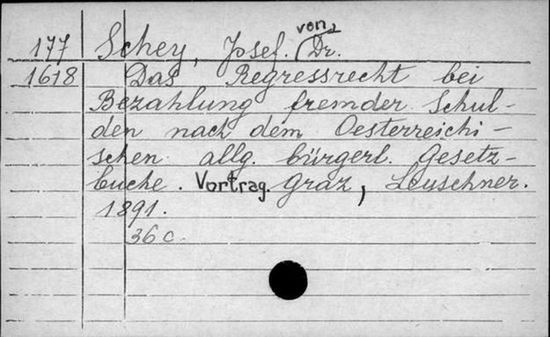 177 Schey, Josef. von Dr.
1618 Das Regressrecht bei
Bezahlung fremder Schul-
den nach dem Oesterreichi-
schen allg. bürgerl. Gesetz-
buche. Vortrag. Graz, Leuschner.
1891.
36 c.